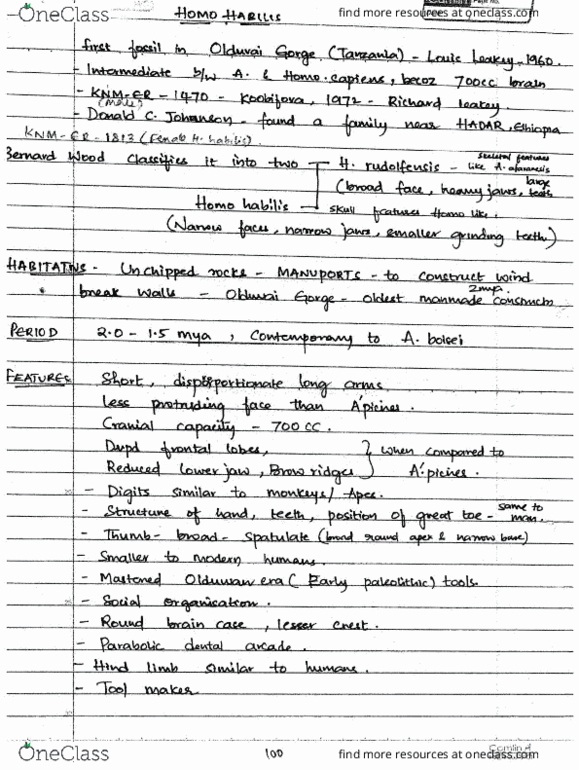 OneClass
find more resources at oneclass.com
HOMO HABILIS
first fossil in Olduvai Gorge (Tanzania) - Louis Leakey - 1960.
- Intermediate b/w A. & Homo. sapiens, becoz 700cc brain
- KNM-ER - 1470 - Koobifora, 1972 - Richard leakey.
(Male)
- Donald C. Johanson - found a family near HADAR, Ethiopia
KNM-ER-1813 (Female H. habilis).
Bernard Wood classifies it into two H. rudolfensis - skeletal features like A. afarensis
(broad face, heavy jaws, large teeth)
Homo habilis - skull features Homo like.
(Narrow faces, narrow jaws, smaller grinding teeth)
HABITATNS - Unchipped rocks - MANUPORTS - to construct wind
break walls - Olduvai Gorge - oldest manmade 2mya.
PERIOD 2.0 - 1.5 mya, Contemporary to A. boisei
FEATURES Short, disproportionate long arms
less protruding face than A'picines.
Cranial capacity - 700 CC.
Dvpd frontal lobes,
Reduced lower jaw, Brow ridges } when compared to A'picines.
- Digits similar to monkeys/ Apes.
- Structure of hand, teeth, position of great toe - same to man.
- Thumb - broad - Spatulate (broad round apex & narrow base)
- Smaller to modern humans.
- Mastered Olduwan era (Early paleolithic) tools.
- Social organisation.
- Round brain case, lesser crest.
- Parabolic dental arcade.
- Hind limb similar to humans.
- Tool maker
OneClass
100
Camlin
find more resources at oneclass.com